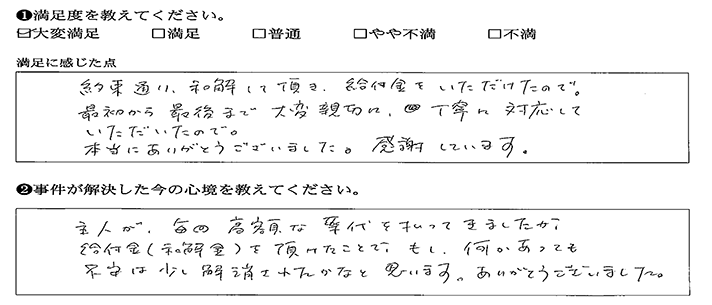 ❶満足度を教えてください。
☑大変満足 □満足 □普通 □やや不満 □不満
満足に感じた点
約束通り、和解して頂き、給付金をいただけたので。
最初から最後まで大変親切に、丁寧に対応して
いただいたので。
本当にありがとうございました。感謝しています。
❷事件が解決した今の心境を教えてください。
主人が、毎回高額な薬代を払ってきましたが、
給付金(和解金)を頂けたことで、もし、何かあっても
不安は少し解消されたかなと思います。ありがとうございました。